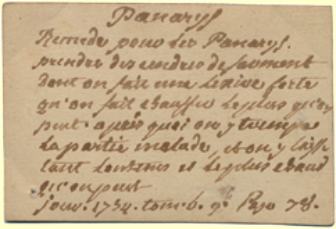 Panarys
Remede pour les Panarys.
prendre des cendres de sarment
dont on fait une lexive forte
qu'on fait chauffer le plus qu'on
peut apres quoi on y trempe
la partie malade, et on y laisse
tant
et le plus chaud
qu'on peut
jour. 1754. tom. 6. Page 78.